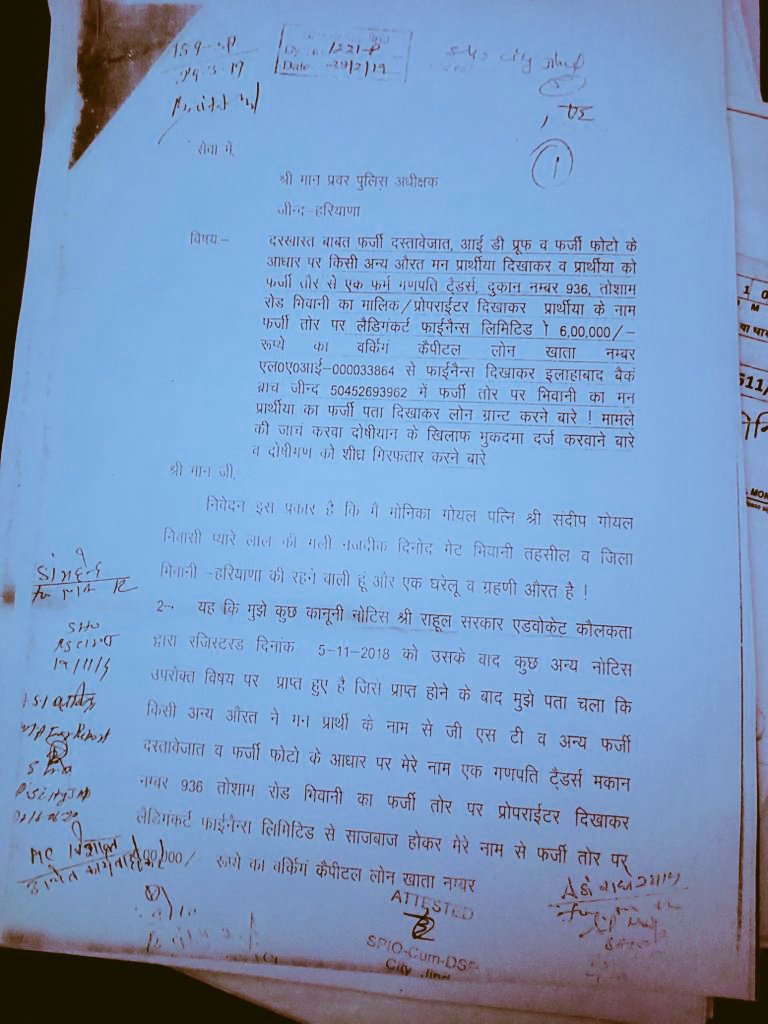 1221-P
SHO City
①
सेवा में,
श्री मान प्रवर पुलिस अधीक्षक
जीन्द-हरियाणा
विषय:- दरखास्त बाबत फर्जी दस्तावेजात, आई डी प्रूफ व फर्जी फोटो के
आधार पर किसी अन्य औरत मन प्रार्थीया दिखाकर व प्रार्थीया को
फर्जी तौर से एक फर्म गणपति ट्रैडर्स, दुकान नम्बर 936, तोशाम
रोड भिवानी का मालिक/प्रोपराईटर दिखाकर प्रार्थीया के नाम
फर्जी तोर पर लैडिगंकर्ट फाईनैन्स लिमिटिड 6,00,000/-
रूप्ये का वर्किगं कैपीटल लोन खाता नम्बर
एल0ए0आई-000033864 से फाईनैन्स दिखाकर इलाहाबाद बैक
ब्राच जीन्द 50452693962 में फर्जी तोर पर भिवानी का मन
प्रार्थीया का फर्जी पता दिखाकर लोन ग्रान्ट करने बारे ! मामले
की जाचं करवा दोषीयान के खिलाफ मुकदमा दर्ज करवाने बारे
व दोषीगण को शीध्र गिरफतार करने बारे
श्री मान जी,
निवेदन इस प्रकार है कि मै मोनिका गोयल पत्नि श्री संदीप गोयल
निवासी प्यारे लाल की गली नजदीक दिनोद गेट भिवानी तहसील व जिला
भिवानी -हरियाणा की रहने वाली हूं और एक घरेलू व ग्रहणी औरत है !
2- यह कि मुझे कुछ कानूनी नोटिस श्री राहूल सरकार एडवोकेट कौलकता
द्वारा रजिस्टरड दिनांक 5-11-2018 को उसके बाद कुछ अन्य नोटिस
उपरोक्त विषय पर प्राप्त हुए है जिसे प्राप्त होने के बाद मुझे पता चला कि
किसी अन्य औरत ने मन प्रार्थी के नाम से जी एस टी व अन्य फर्जी
दस्तावेजात व फर्जी फोटो के आधार पर मेरे नाम एक गणपति ट्रैडर्स मकान
नम्बर 936 तोशाम रोड भिवानी का फर्जी तोर पर प्रोपराईटर दिखाकर
लैडिगंकर्ट फाईनैन्स लिमिटिड से साजबाज होकर मेरे नाम से फर्जी तोर पर
रूप्ये का वर्किगं कैपीटल लोन खाता नम्बर
ATTESTED
SPIO-Cum-DSP
City Jind